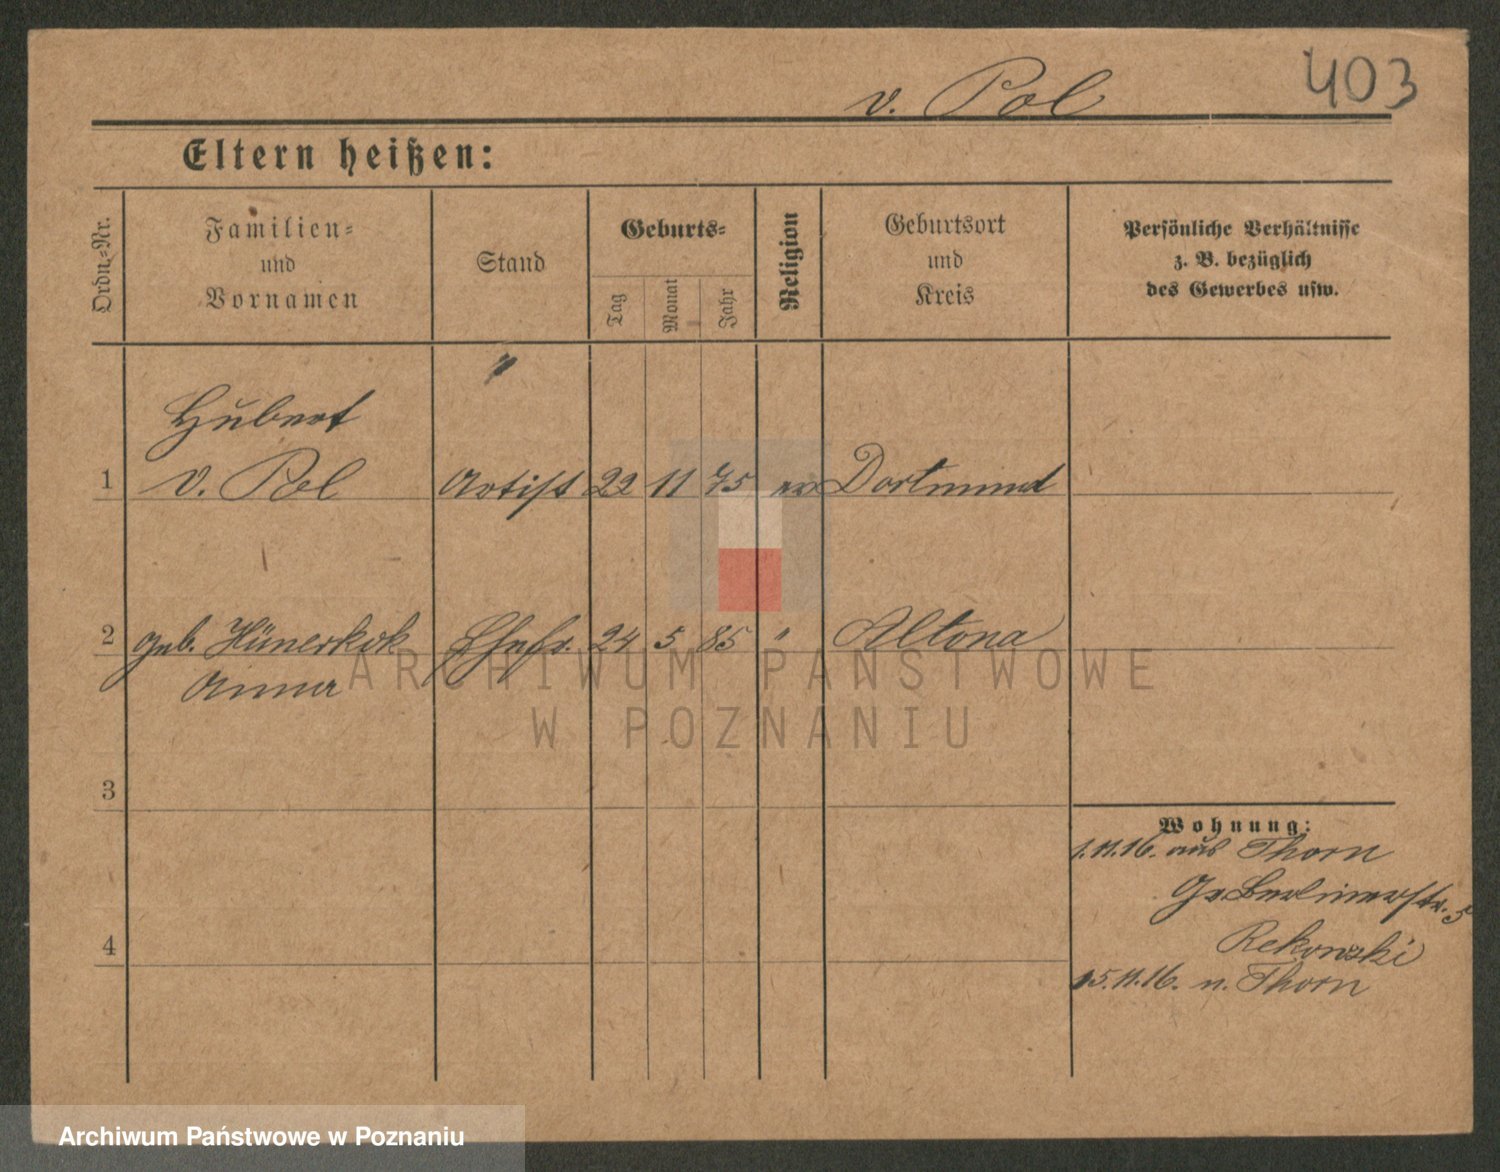 403
v. Pol
Eltern heißen:
Ordn.-Nr.
Familien-
und
Vornamen
Stand
Geburts-
Tag
Monat
Jahr
Religion
Geburtsort
und
Kreis
Persönliche Verhältnisse
z. B. bezüglich
des Gewerbes usw.
Hubert
1 v. Pol Artist 22 11 75 ev Dortmund
2 geb. Hünerkok Ehefr. 24 5 85 " Altona
Anna
3
4
Wohnung:
1.11.16. aus Thorn
Gr. Berlinerstr. 5
Rekowski
15.11.16. n. Thorn
ARCHIWUM PAŃSTWOWE
W POZNANIU
Archiwum Państwowe w Poznaniu